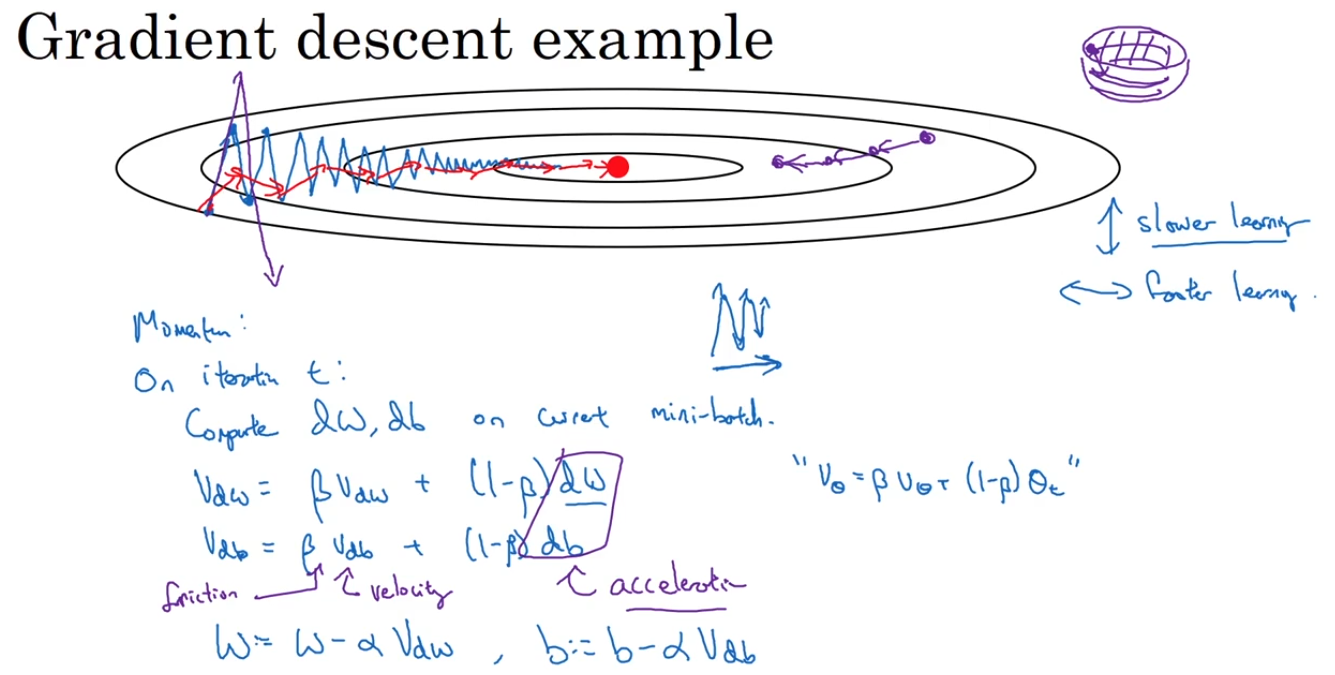 Gradient descent example
↕ slower learning
↔ faster learning.
Momentum:
On iteration t:
Compute dW, db on current mini-batch.
V_dw = β V_dw + (1-β) dW
"V_θ = β V_θ + (1-β) θ_t"
V_db = β V_db + (1-β) db
friction → ↑ velocity ↑ acceleration
W := W - α V_dw , b := b - α V_db